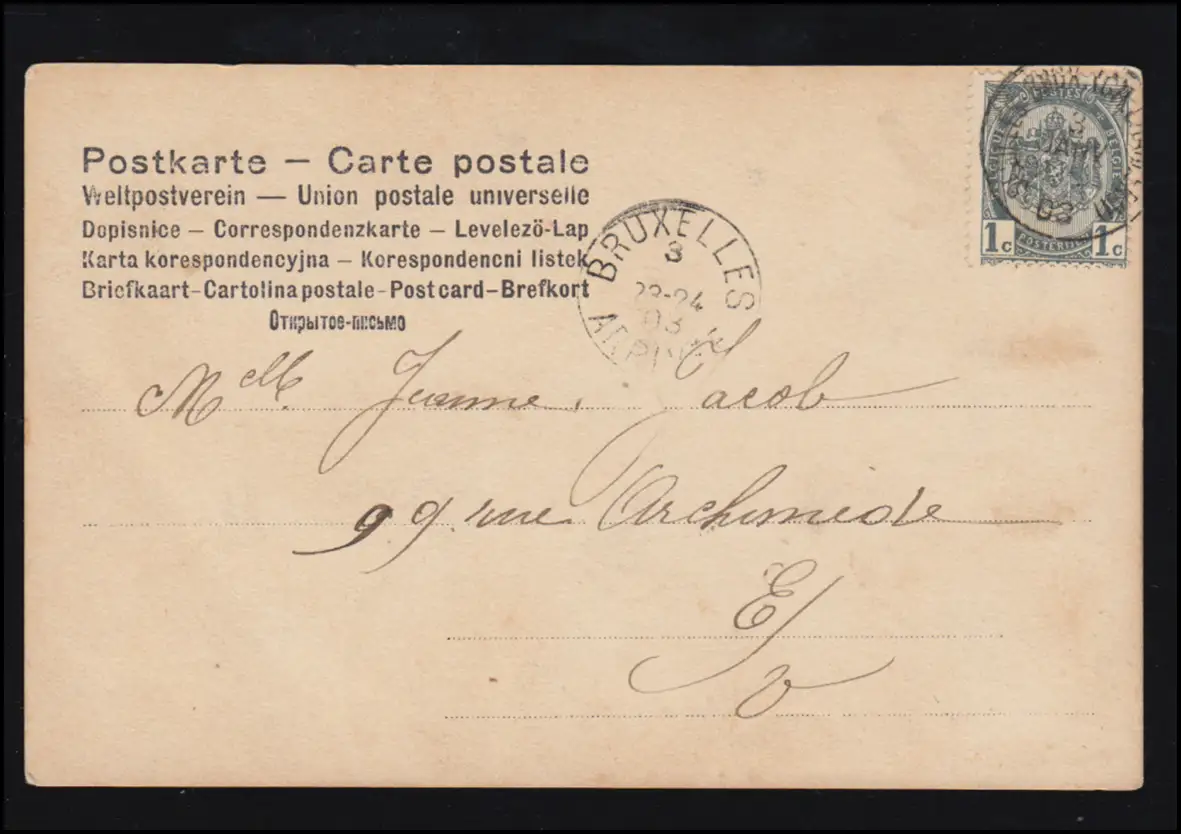 Postkarte – Carte postale
Weltpostverein — Union postale universelle
Dopisnice – Correspondenzkarte – Levelező-Lap
Karta korespondencyjna – Korespondencni listek
Briefkaart-Cartolina postale-Post card-Brefkort
Открытое-письмо
BRUXELLES
3
23-24
03
POSTES
BELGIQUE BELGIE
POSTERIJEN
1c 1c
3
JANV
03
Melle Jeanne Jacob
99 rue Archimède
E/V